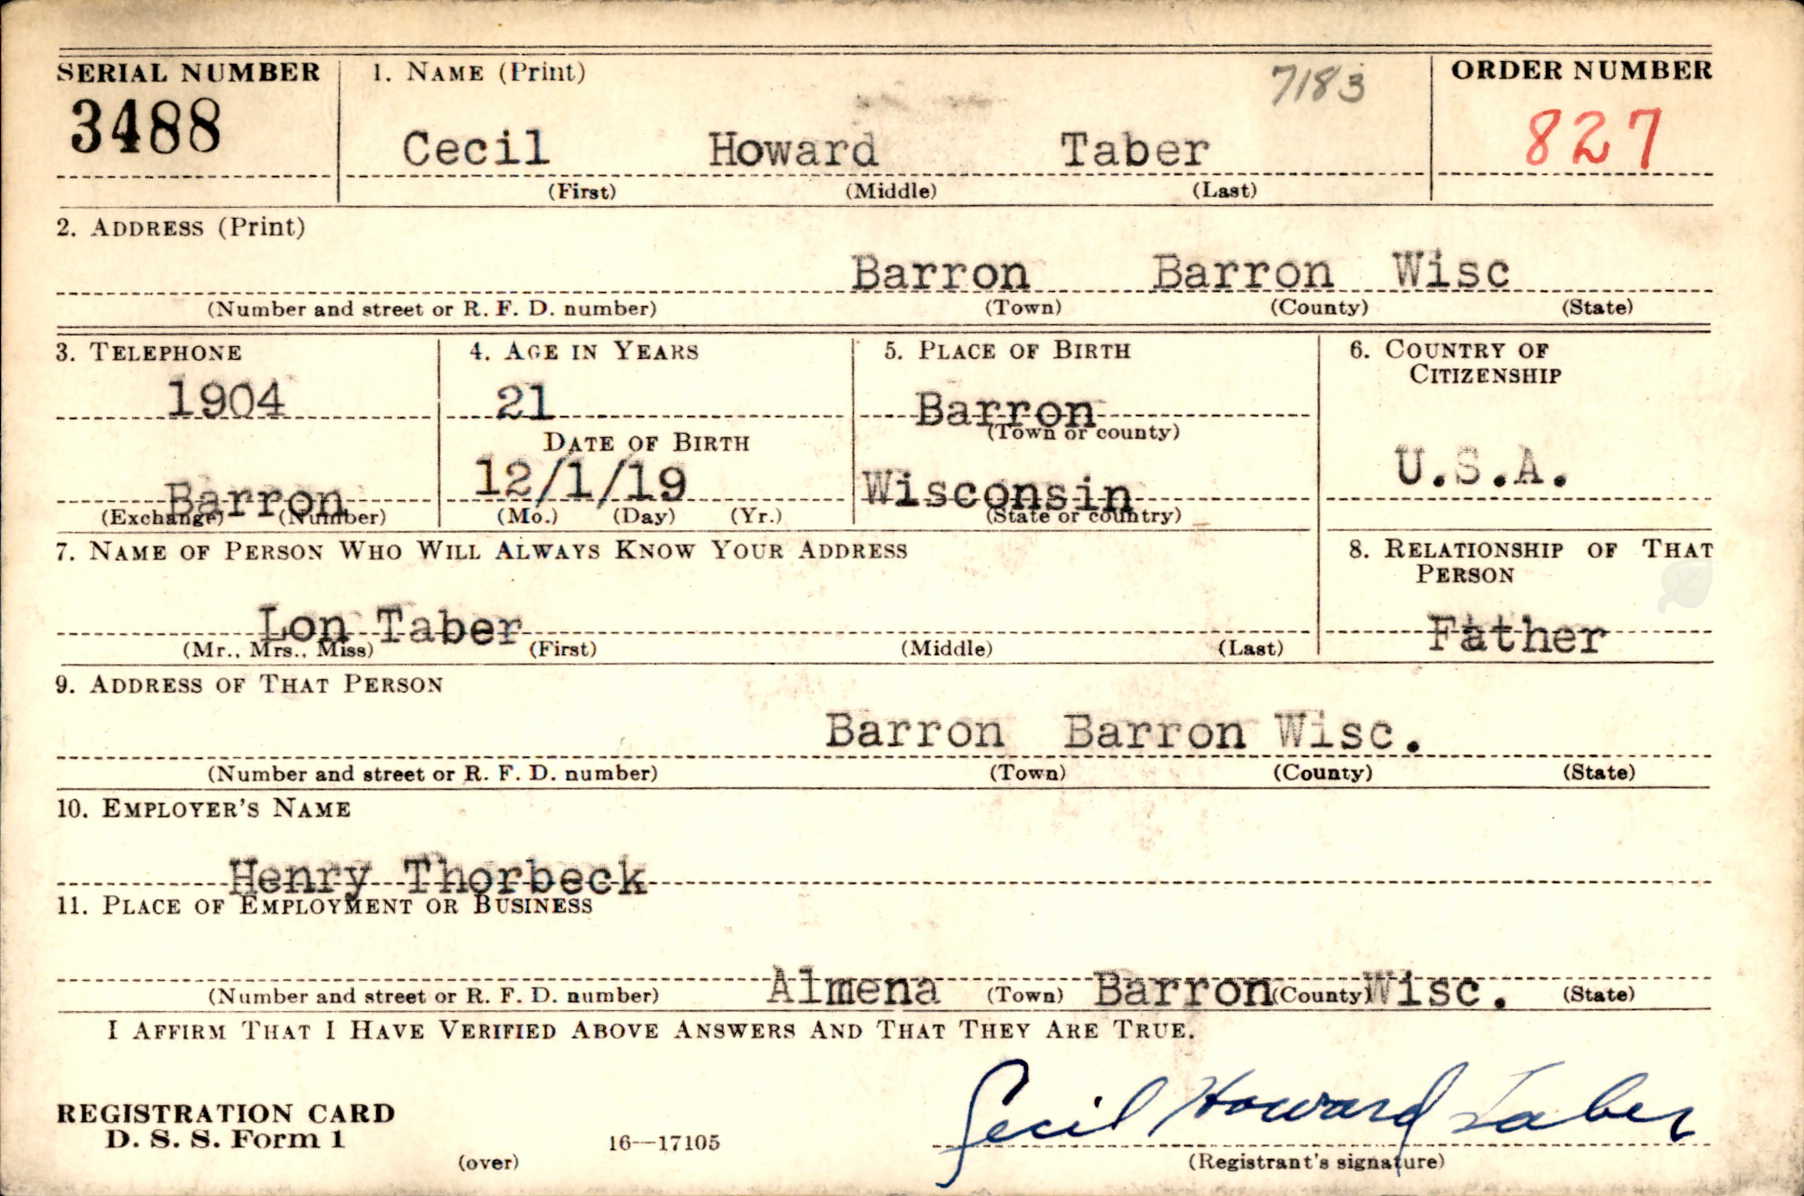 SERIAL NUMBER 1. NAME (Print) 7183 ORDER NUMBER
3488 Cecil Howard Taber 827
(First) (Middle) (Last)
2. ADDRESS (Print)
Barron Barron Wisc
(Number and street or R. F. D. number) (Town) (County) (State)
3. TELEPHONE 4. AGE IN YEARS 5. PLACE OF BIRTH 6. COUNTRY OF
CITIZENSHIP
1904 21 Barron
(Town or county)
DATE OF BIRTH
Barron 12/1/19 Wisconsin U.S.A.
(Exchange) (Number) (Mo.) (Day) (Yr.) (State or country)
7. NAME OF PERSON WHO WILL ALWAYS KNOW YOUR ADDRESS 8. RELATIONSHIP OF THAT
PERSON
Lon Taber Father
(Mr., Mrs., Miss) (First) (Middle) (Last)
9. ADDRESS OF THAT PERSON
Barron Barron Wisc.
(Number and street or R. F. D. number) (Town) (County) (State)
10. EMPLOYER'S NAME
Henry Thorbeck
11. PLACE OF EMPLOYMENT OR BUSINESS
Almena Barron Wisc.
(Number and street or R. F. D. number) (Town) (County) (State)
I AFFIRM THAT I HAVE VERIFIED ABOVE ANSWERS AND THAT THEY ARE TRUE.
Cecil Howard Taber
REGISTRATION CARD
D. S. S. Form 1 16—17105
(over) (Registrant's signature)